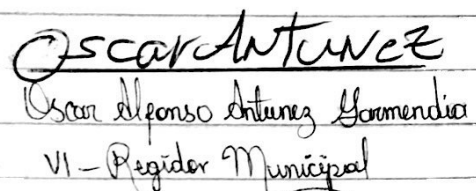 Oscar Antunez
Oscar Alfonso Antunez Garmendia
VI - Regidor Municipal